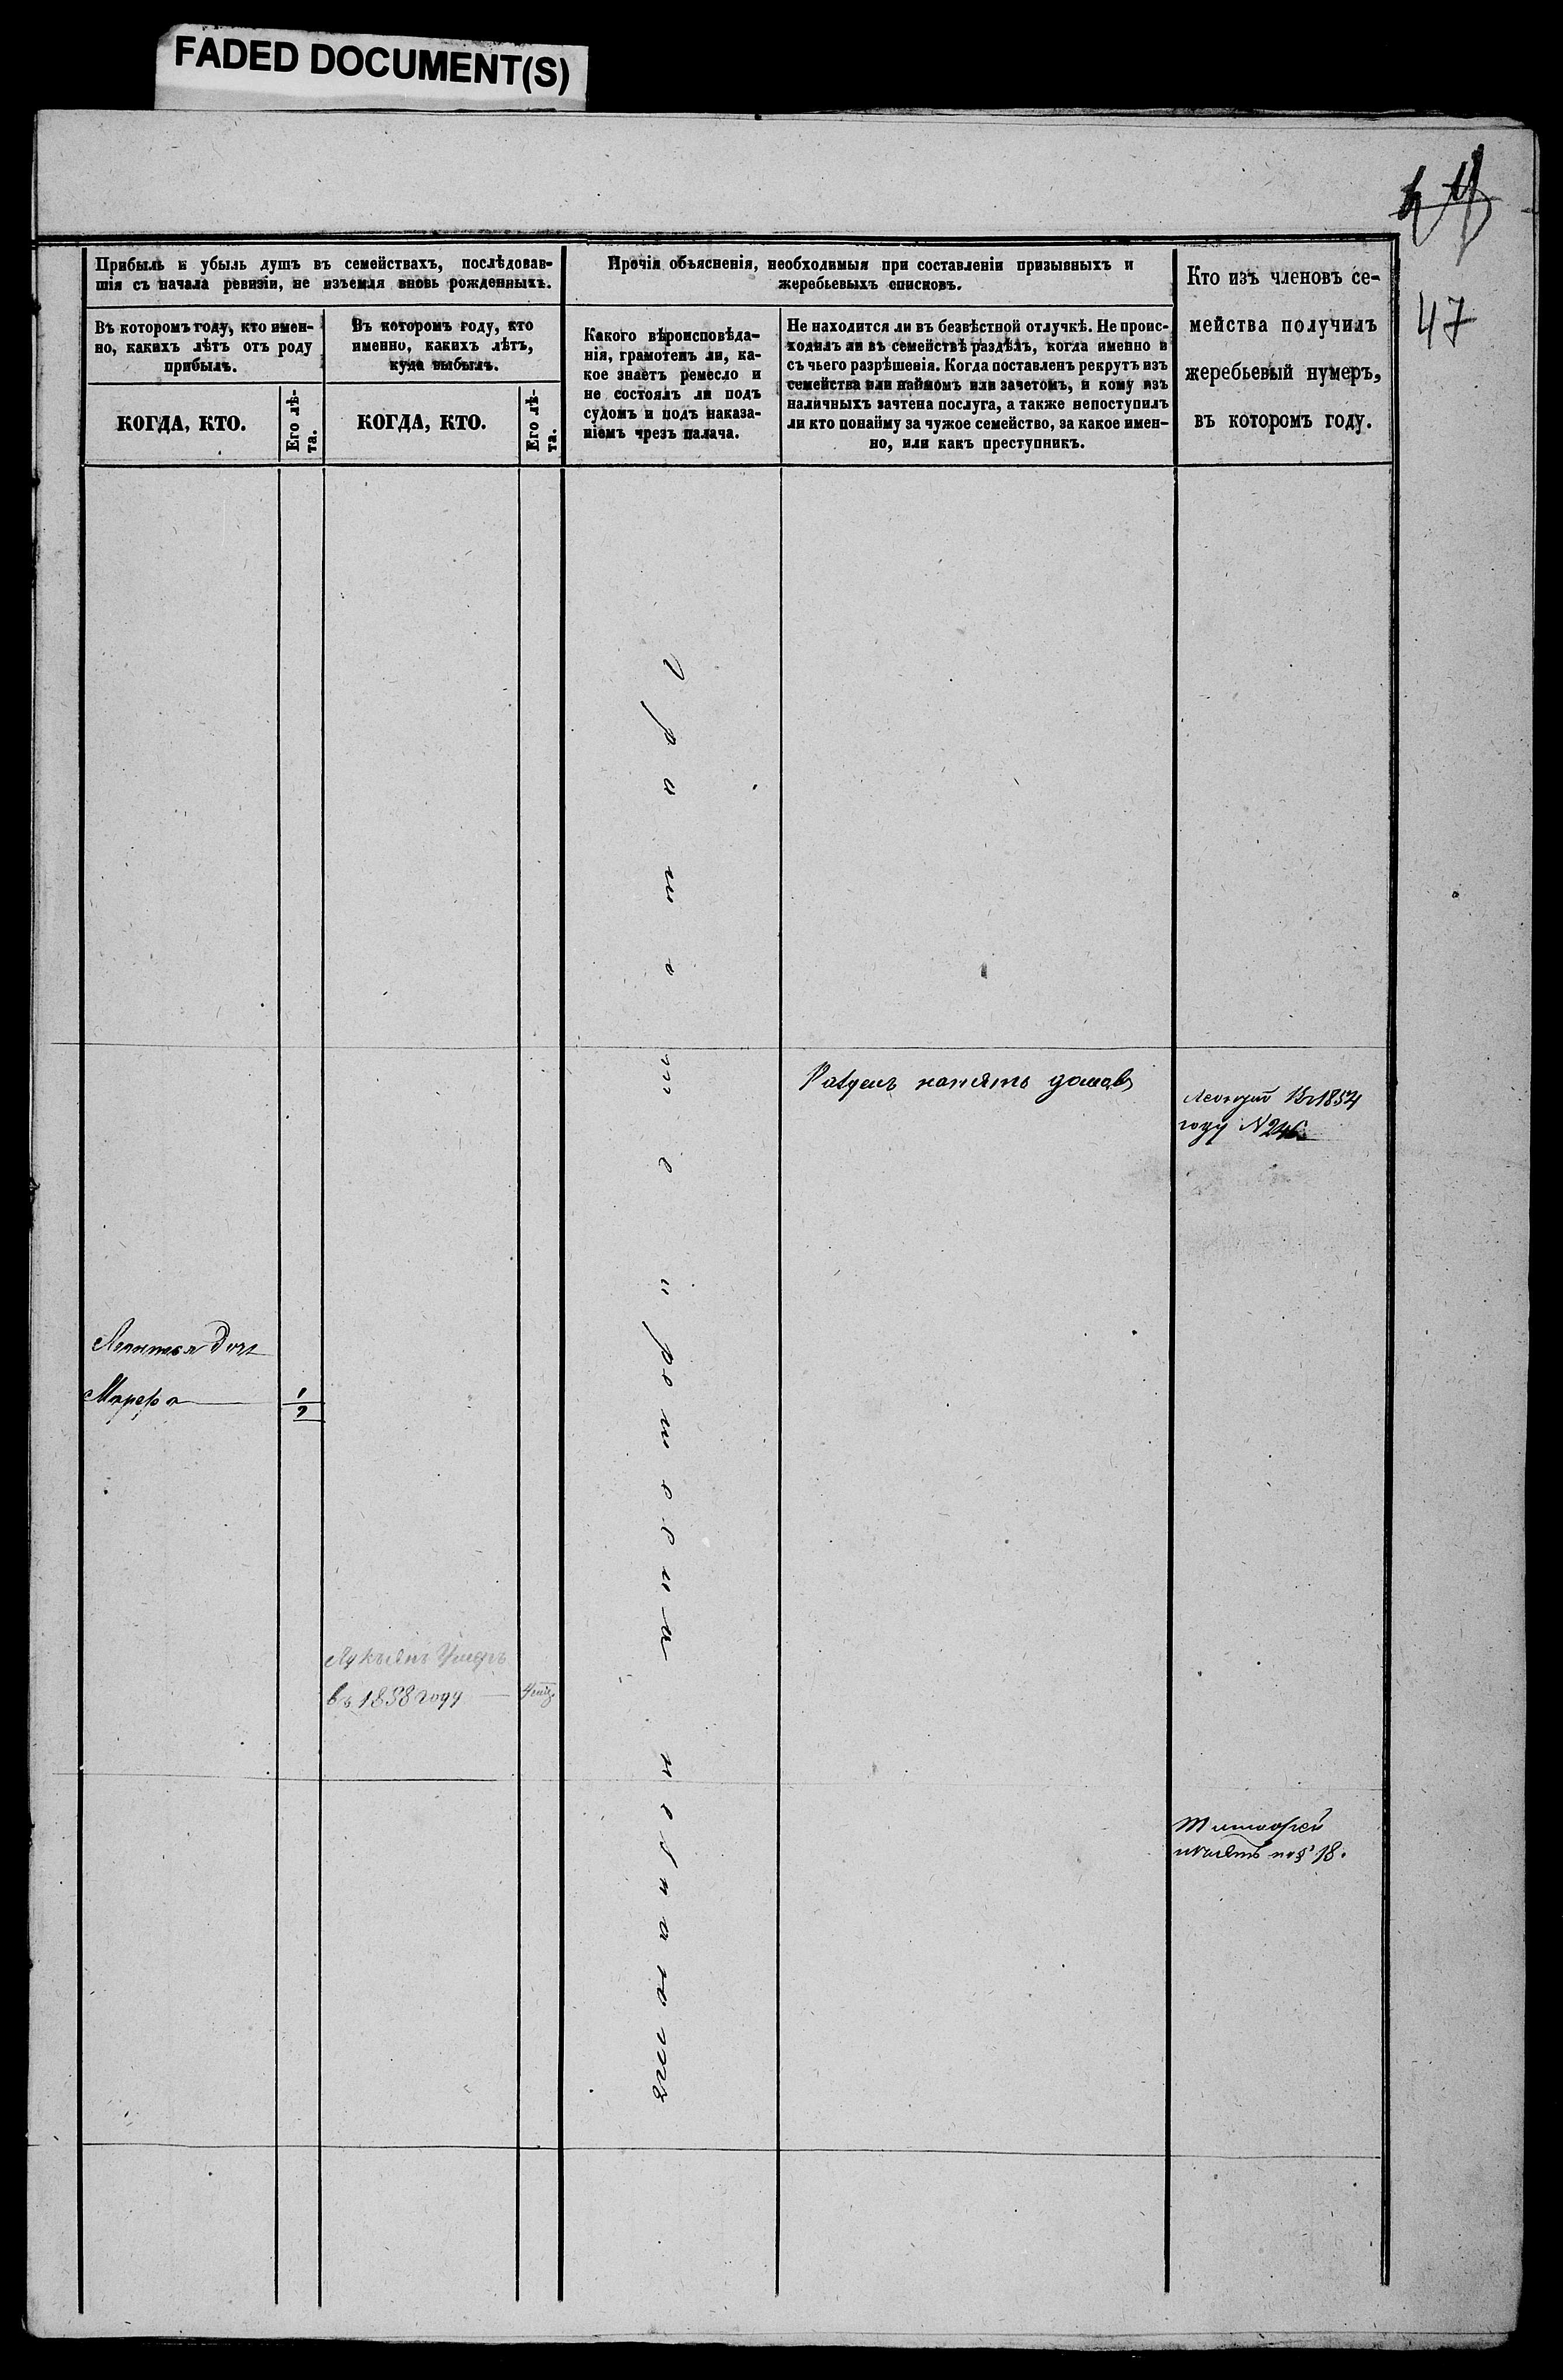 FADED DOCUMENT(S)
47
Прибыль и убыль душъ въ семействахъ, послѣдовав-
шія съ начала ревизіи, не изъемля вновь рожденныхъ.
Въ которомъ году, кто имен-
но, какихъ лѣтъ отъ роду
прибылъ.
КОГДА, КТО.
Его лѣ-
та.
Въ которомъ году, кто
именно, какихъ лѣтъ,
куда выбылъ.
КОГДА, КТО.
Его лѣ-
та.
Прочія объясненія, необходимыя при составленіи призывныхъ и
жеребьевыхъ списковъ.
Какого вѣроисповѣда-
нія, грамотенъ ли, ка-
кое знаетъ ремесло и
не состоялъ ли подъ
судомъ и подъ наказа-
ніемъ чрезъ палача.
Не находится ли въ безвѣстной отлучкѣ. Не проис-
ходилъ ли въ семействѣ раздѣлъ, когда именно и
съ чьего разрѣшенія. Когда поставленъ рекрутъ изъ
семейства или наймомъ или зачетомъ, и кому изъ
наличныхъ зачтена послуга, а также непоступилъ
ли кто понайму за чужое семейство, за какое имен-
но, или какъ преступникъ.
Кто изъ членовъ се-
мейства получилъ
жеребьевый нумеръ,
въ которомъ году.
году N 246
Марфа 1/2
Лукьянъ Умеръ
въ 1858 году
18.